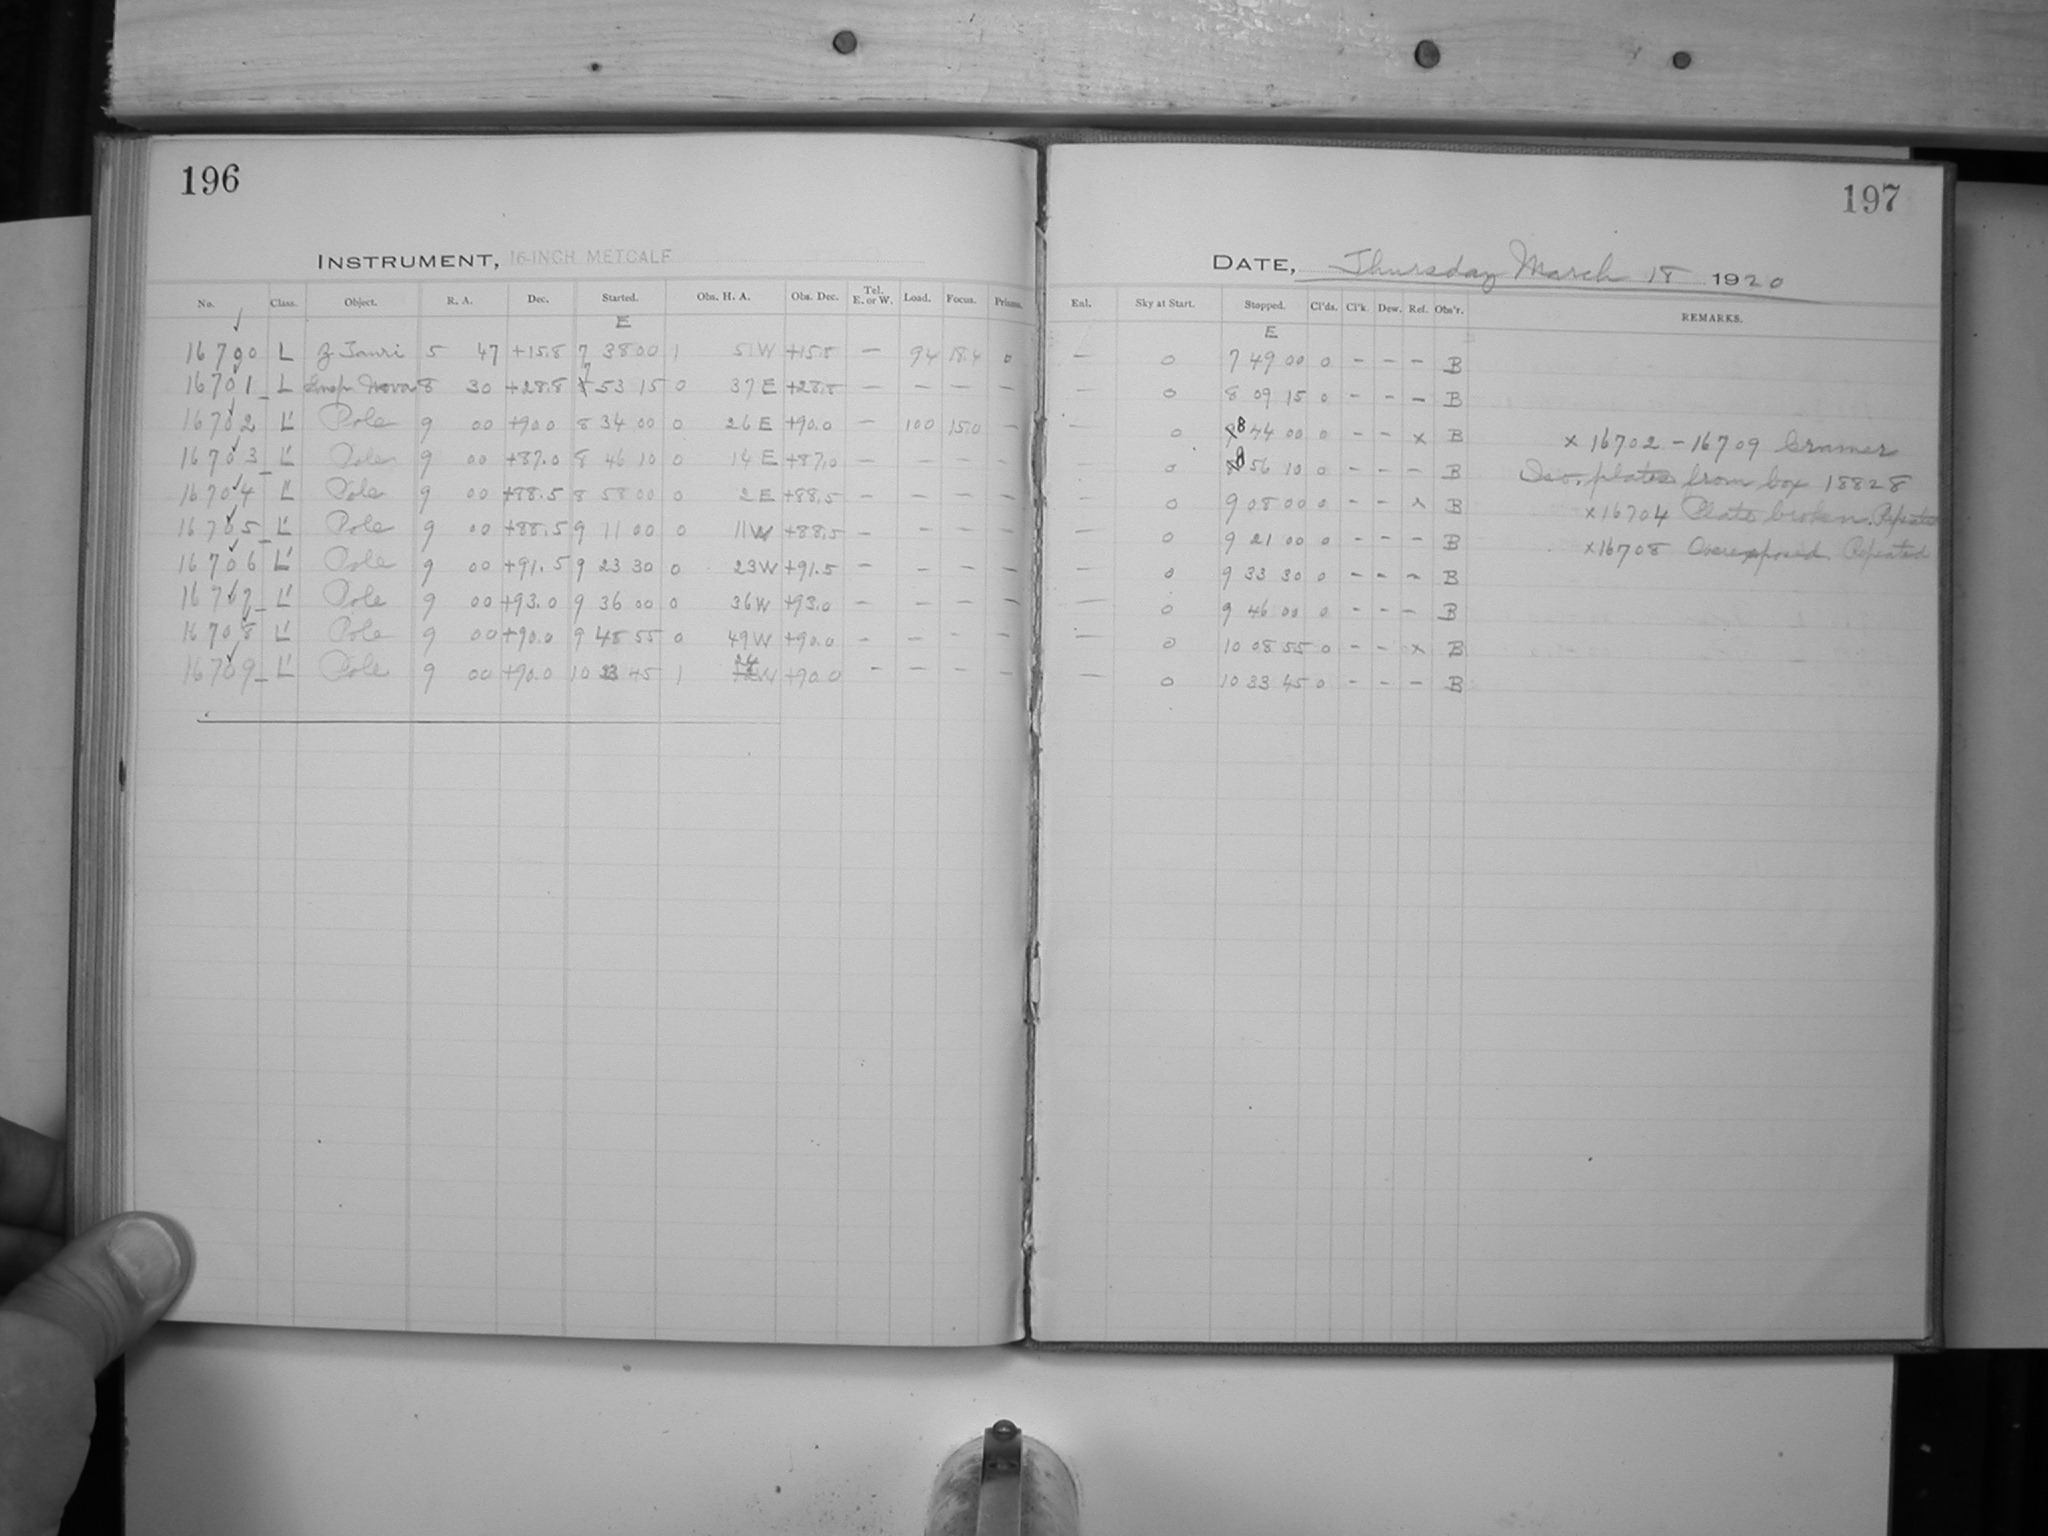 196
INSTRUMENT, 16-INCH METCALF
No. Class. Object. R. A. Dec. Started. Obs. H. A. Obs. Dec. Tel. E. or W. Load. Focus. Prisms.
E
16700 L Tauri 5 47 +15.8 7 38 00 1 51 W +15.8 — 94 18.4 0
16701 L Nova 8 30 +28.8 7 53 15 0 37 E +28.8 — — — —
16702 L' Pole 9 00 +90.0 8 34 00 0 26 E +90.0 — 100 15.0 —
16703 L' Pole 9 00 +87.0 8 46 10 0 14 E +87.0 — — — —
16704 L' Pole 9 00 +88.5 8 58 00 0 2 E +88.5 — — — —
16705 L' Pole 9 00 +88.5 9 11 00 0 11 W +88.5 — — — —
16706 L' Pole 9 00 +91.5 9 23 30 0 23 W +91.5 — — — —
16707 L' Pole 9 00 +93.0 9 36 00 0 36 W +93.0 — — — —
16708 L' Pole 9 00 +90.0 9 48 55 0 49 W +90.0 — — — —
16709 L' Pole 9 00 +90.0 10 23 45 1 24 W +90.0 — — — —
197
DATE, Thursday March 18 1920
Enl. Sky at Start. Stopped. Cl'ds. Cl'k. Dew. Ref. Obs'r. REMARKS.
E
— 0 7 49 00 0 – – – B
— 0 8 09 15 0 – – – B
— 0 8 44 00 0 – – x B x 16702 – 16709 Cramer
— 0 8 56 10 0 – – – B Iso. plates from box 18828
— 0 9 08 00 0 – – x B x16704 Plate broken. Repeated
— 0 9 21 00 0 – – – B x16708 Overexposed. Repeated
0 9 33 30 0 – – – B
— 0 9 46 00 0 – – – B
— 0 10 08 55 0 – – x B
— 0 10 33 45 0 – – – B